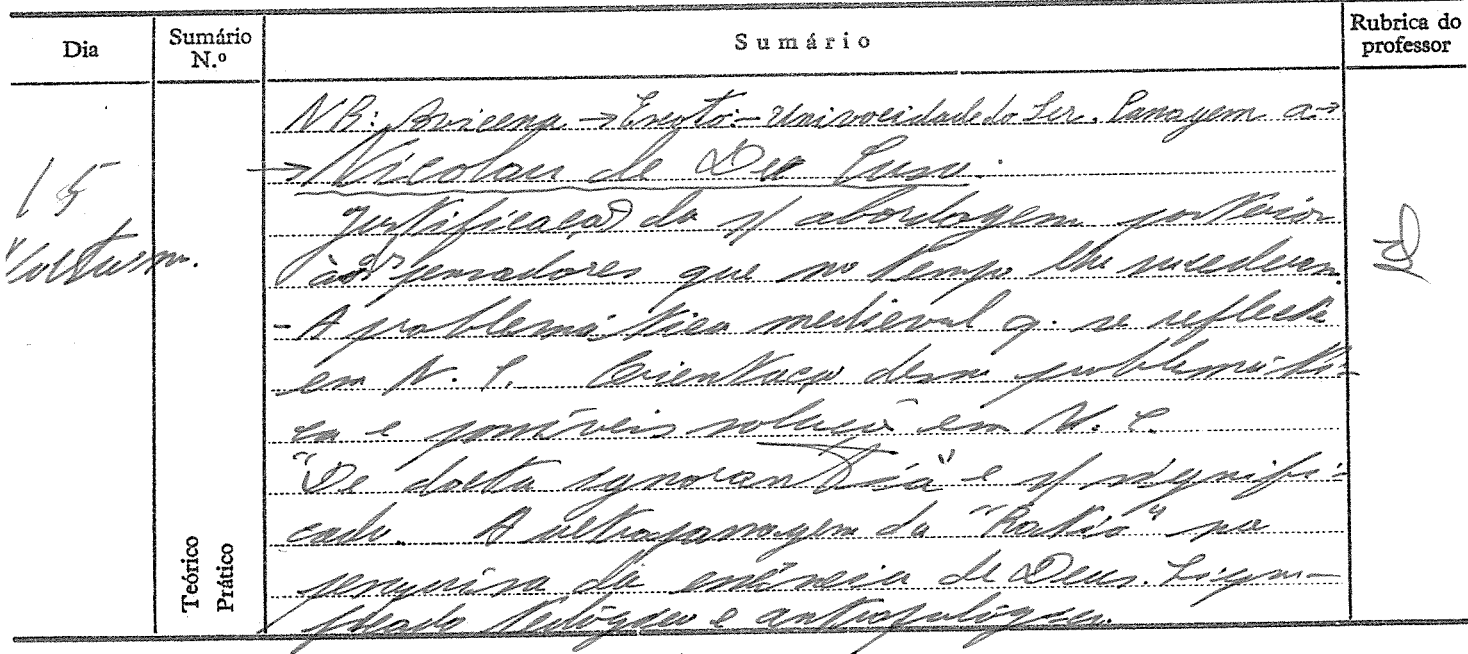 Dia
Sumário N.º
Sumário
Rubrica do professor
NB: Avicena → Escoto: – Univocidade do Ser. Passagem a: →
15
→ Nicolau de Cusa.
Justificação da s/ abordagem posterior
aos pensadores que no tempo lhe sucederam
- A problemática medieval q. se reflecte
em N. C. Orientação dessa problemáti-
ca e possíveis soluções em N. C.
"De docta ignorantia" e s/ signifi-
cado. A ultrapassagem da "Ratio" na
pesquisa da essência de Deus. Signi-
ficado teológico e antropológico.
Teórico
Prático